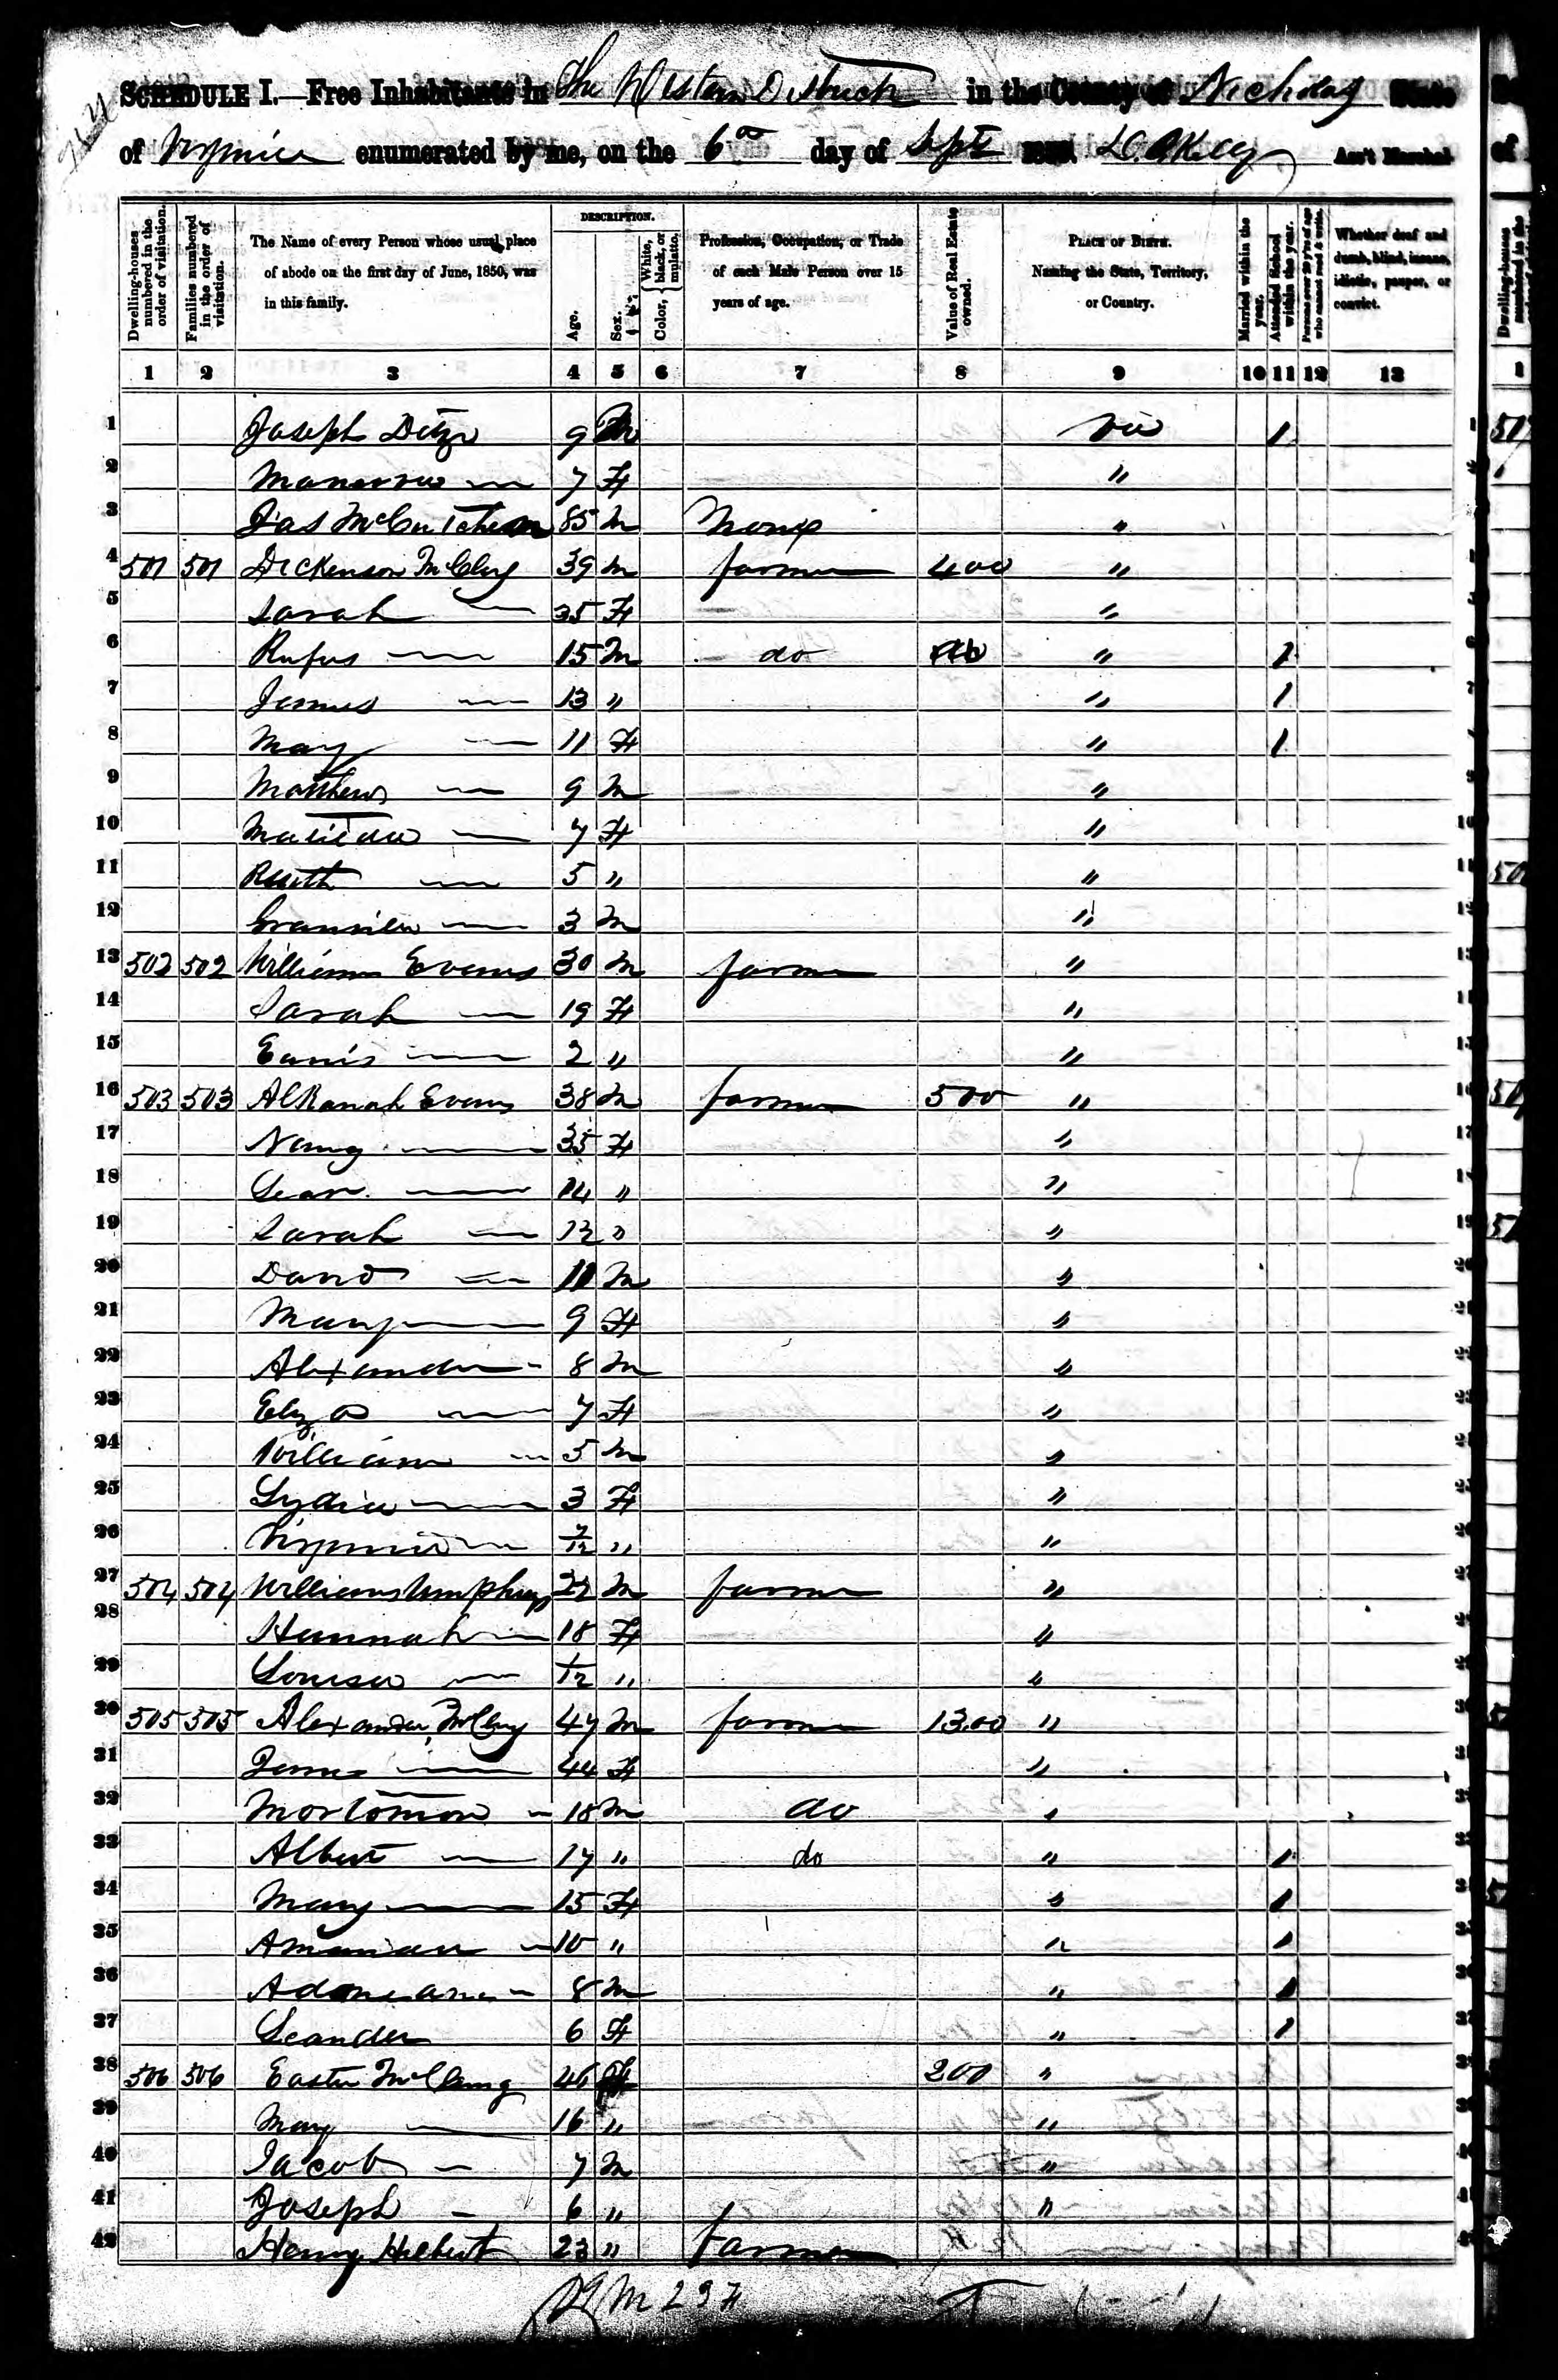 SCHEDULE I.—Free Inhabitants in The Western District in the County of Nicholas State
of Virginia enumerated by me, on the 6th day of Sept 1850. Ass't Marshal
Dwelling-houses numbered in the order of visitation.
Families numbered in the order of visitation.
The Name of every Person whose usual place of abode on the first day of June, 1850, was in this family.
DESCRIPTION.
Age.
Sex.
Color, { White, black, or mulatto.
Profession, Occupation, or Trade of each Male Person over 15 years of age.
Value of Real Estate owned.
PLACE OF BIRTH. Naming the State, Territory, or Country.
Married within the year.
Attended School within the year.
Persons over 20 y'rs of age who cannot read & write.
Whether deaf and dumb, blind, insane, idiotic, pauper, or convict.
1 2 3 4 5 6 7 8 9 10 11 12 13
1 Joseph Ditz 9 M Via 1
2 — 7 F "
3 Jas McCutcheon 85 M None "
4 501 501 Dickenson McClug 39 M farmer 400 "
5 Sarah — 35 F "
6 Rufus — 15 M do " 1
7 James — 13 " " 1
8 Mary — 11 F " 1
9 Matthew — 9 M "
10 Matilda — 7 F "
11 Ruth — 5 " "
12 Granville — 3 M "
13 502 502 William Evans 30 M farmer "
14 Sarah — 19 F "
15 — 2 " "
16 503 503 Alkanah Evans 38 M farmer 500 "
17 Nancy — 35 F "
18 Leah — 14 " "
19 Sarah — 12 " "
20 David — 11 M "
21 Mary — 9 F "
22 Alexander - 8 M "
23 Eliza — 7 F "
24 William — 5 M "
25 Lydia — 3 F "
26 Virginia — 7/12 " "
27 504 504 William Umphreys 22 M farmer "
28 Hannah — 18 F "
29 Louisa — 1/12 " "
30 505 505 Alexander McClug 47 M farmer 1300 "
31 — 44 F "
32 — 18 M do "
33 Albert — 17 " do " 1
34 Mary — 15 F " 1
35 Amanda — 10 " " 1
36 - 8 M " 1
37 Leander 6 F " 1
38 506 506 Easter McClung 46 F 200 "
39 Mary — 16 " "
40 Jacob — 7 M "
41 Joseph — 6 " "
42 Henry Hilbert 23 " farmer
19 M 23 F